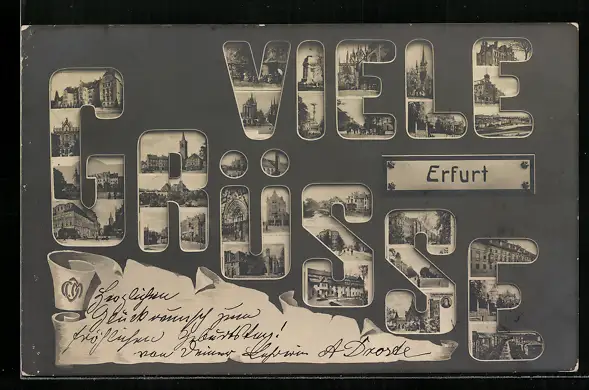 VIELE
GRÜSSE
Erfurt
Herzlichen
Glückwunsch zum
fröhlichen Geburtstag!
von Deiner A Droste